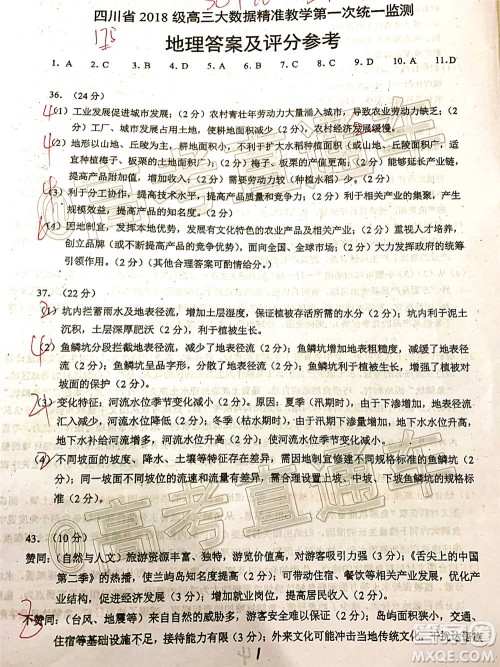 四川省 2018 级高三大数据精准教学第一次统一监测
175
地理答案及评分参考
1. A 2. C 3. B 4. C 5. A 6. D 7. B 8. C 9. D 10. A 11. D
36. (24 分)
(1) 工业发展促进城市发展;(2 分) 农村青壮年劳动力大量涌入城市,导致农业劳动力缺乏;
(2 分) 工厂、城市发展占用土地,使耕地面积减少(2 分),农村经济发展缓慢。
(2) 地形以山地、丘陵为主,耕地面积小,不利于扩大水稻种植面积(2 分);山地面积广,适
宜种植梅子、板栗的面积更大;(2 分) 梅子、板栗的产量更高;(2 分) 利于提高产品质量、
提高产品附加值,增加收入(2 分)。
(3) 利于分工协作,提高技术水平,提高产品质量,提高竞争力(2 分);利于相关产业的集聚,产生
规模效益,提高产品的知名度。(2 分)
(4) 因地制宜,发挥本地优势,发展有文化特色的农业产品及相关产业;(2 分) 培养人才,开展科学研究,
创立品牌(或写提高产品的竞争优势),面向全国、全球市场;(2 分)大力发挥政府的统筹
引领作用。(其他合理答案可酌情给分)。
37. (22 分)
(1) 坑内拦蓄雨水及地表径流,增加土层土壤湿度,保证植被存活所需的水分;(2 分) 坑内利于泥土
沉积,土层深厚肥沃(2 分),利于植被的生长。
(2) 鱼鳞坑分段拦截地表径流,减少了地表径流(2 分);鱼鳞坑增加地表粗糙度,减缓了地表径
流的流速(2 分);鱼鳞坑呈品字形,分散了地表径流(2 分);鱼鳞坑利于植被生长,增加了植被对
坡面的保护(2 分)。
(3) 变化特征:河流水位季节变化减小。(2 分) 原因:夏季(汛期),由于下渗增大,导致地表径流
汇入减少,河流水位降低(2 分);冬季(枯水期),由于汛期下渗量增大,地下水水位升高,
地下水补给河流增多,河流水位升高(2 分),使河流水位季节变化减小。
(4) 不同坡面的坡度、降水、土壤等特征存在差异(2 分),需因地制宜修建不同规格标准的鱼鳞坑(2 分)。
同一坡面不同位置的流速和流量有差异(2 分),需修建上坡、中坡、下坡不同大小的规格标
准。
43. (10 分)
赞同:(自然与人文)旅游资源丰富、独特,游览价值高,对游客吸引力强(3 分);《舌尖上的中国
第二季》的热播,使兰屿岛知名度提高(2 分);可带动交通、住宿、餐饮等相关行业的发展,优化产业
结构,促进经济发展(3 分);增加就业,提高居民收入(2 分)。
不赞同:(台风、地震等)来自自然的威胁多,游客安全难以保证(2 分)。岛屿面积狭小,交通、
住宿等基础设施不足,接待能力有限(3 分);外来文化可能冲击当地传统文化
1